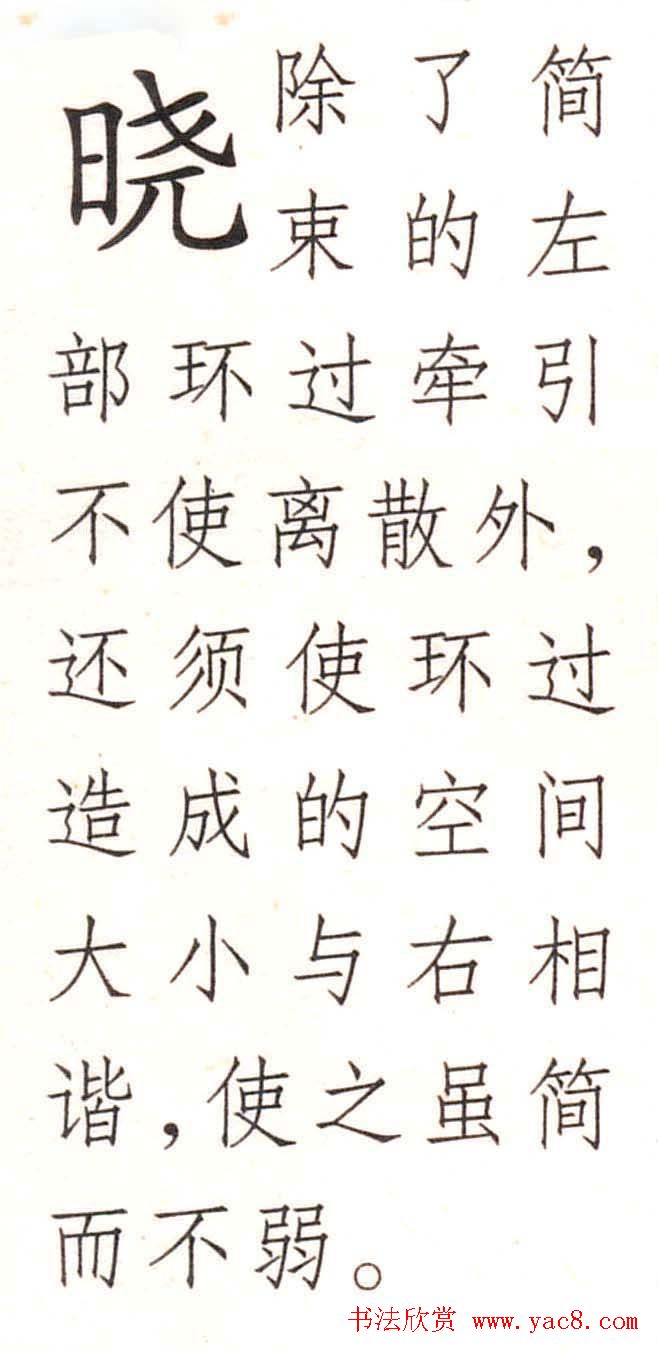 晓 除了简
束的左
部环过牵引
不使离散外，
还须使环过
造成的空间
大小与右相
谐，使之虽简
而不弱。
书法欣赏 www.yac8.com